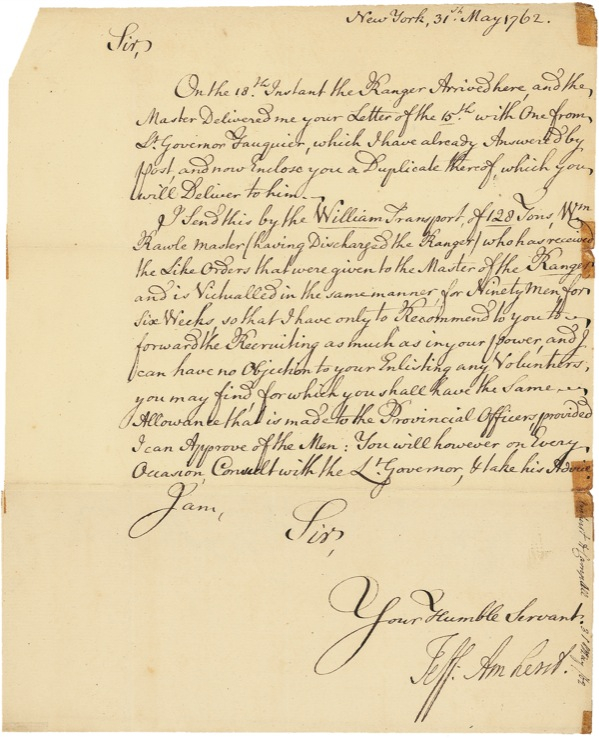 New York, 31st. May 1762.
Sir,
On the 18th. Instant the Ranger Arrived here, and the
Master Delivered me your Letter of the 15th. with One from
Lt. Governor Fauquier, which I have already Answered by
Post, and now Inclose you a Duplicate thereof, which you
will Deliver to him.
I Send this by the William Transport, of 128 Tons, Wm
Rawle Master (having Discharged the Ranger) who has received
the Like Orders that were given to the Master of the Ranger
and is Victualled in the same manner, for Ninety Men for
Six Weeks, so that I have only to Recommend to you to
forward the Recruiting as much as in your power, and I
can have no Objection to your Enlisting any Volunteers,
you may find, for which you shall have the Same
Allowance that is made to the Provincial Officers, provided
I can Approve of the Men: You will however on Every
Occasion, Consult with the Lt. Governor, & take his Advice.
I am,
Sir,
Your Humble Servant.
Jeff: Amherst.
31 May 62